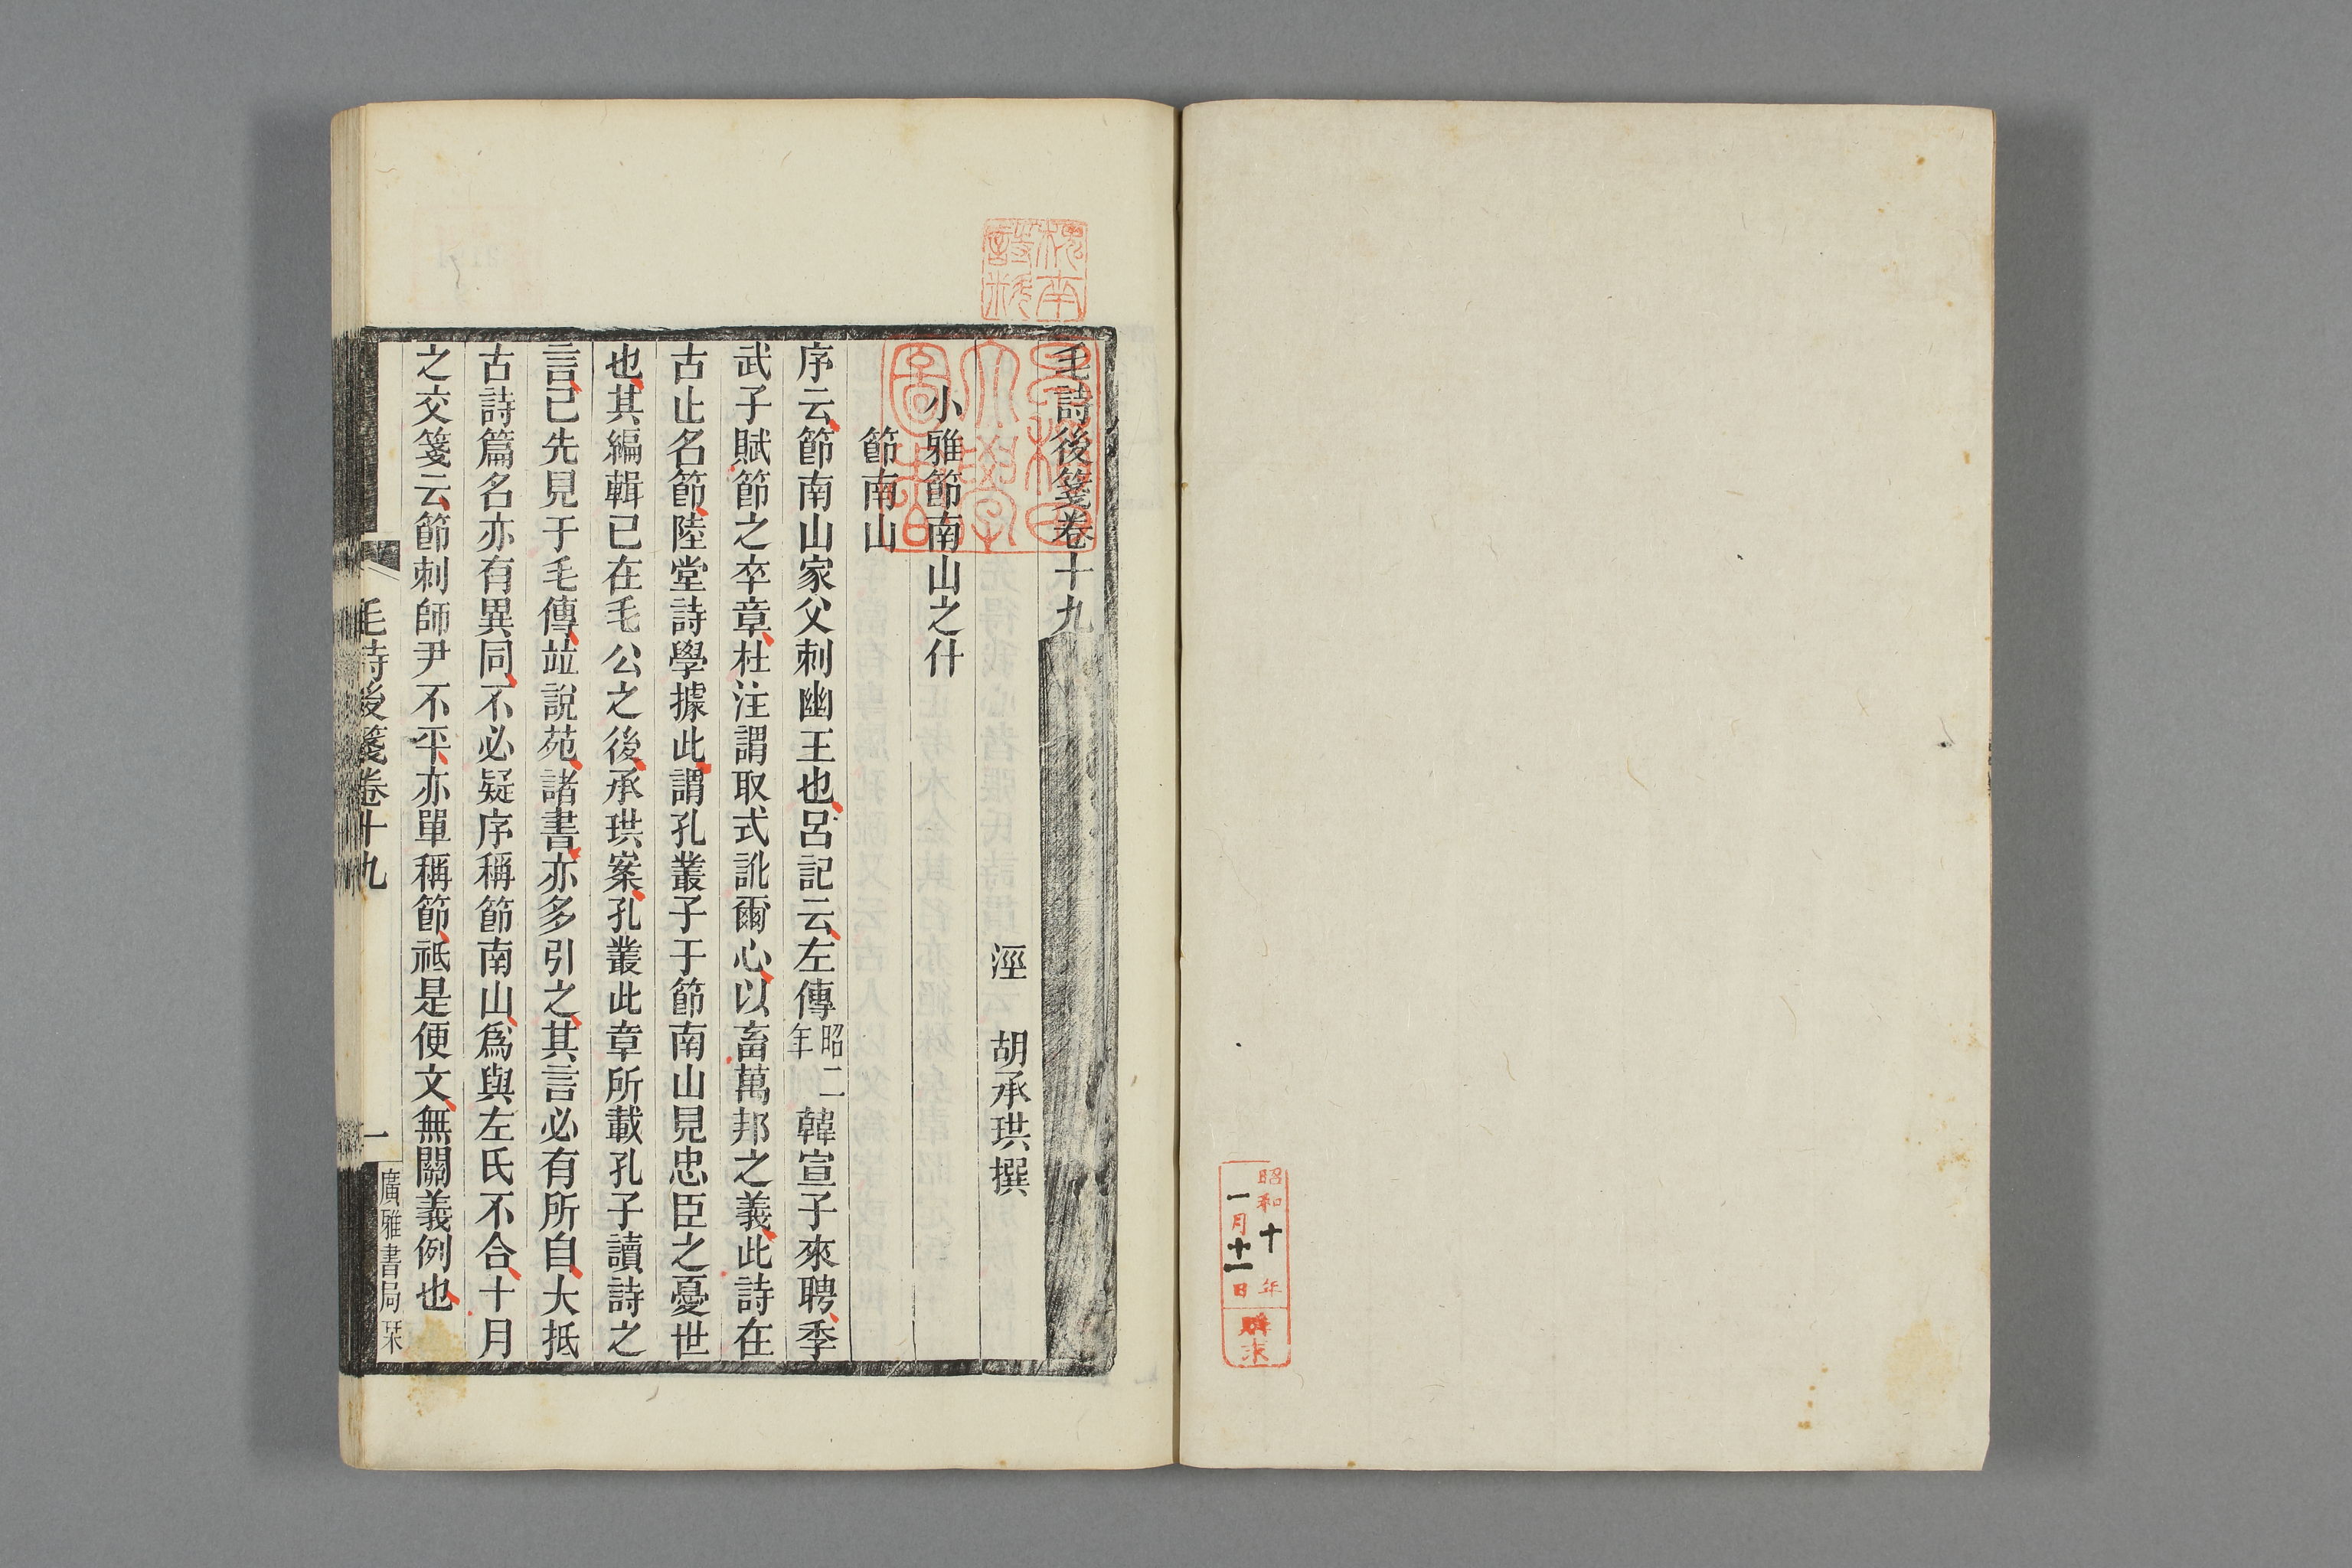 昭和十年
一月十一日
購求
槐南
詩料
毛詩後箋卷十九
涇　胡承珙撰
小雅節南山之什
節南山
序云節南山家父刺幽王也呂記云左傳昭二年韓宣子來聘季
武子賦節之卒章杜注謂取式訛爾心以畜萬邦之義此詩在
古止名節陸堂詩學據此謂孔叢子于節南山見忠臣之憂世
也其編輯已在毛公之後承珙案孔叢此章所載孔子讀詩之
言已先見于毛傳竝說苑諸書亦多引之其言必有所自大抵
古詩篇名亦有異同不必疑序稱節南山爲與左氏不合十月
之交箋云節刺師尹不平亦單稱節祗是便文無關義例也
毛詩後箋卷十九
一
廣雅書局栞